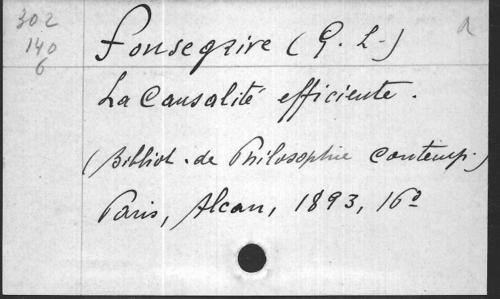 302
140
6
Fonsegrive (G. L.)
a
La Causalité efficiente.
(Bibliot. de Philosophie contemp.)
Paris, Alcan, 1893, 16º